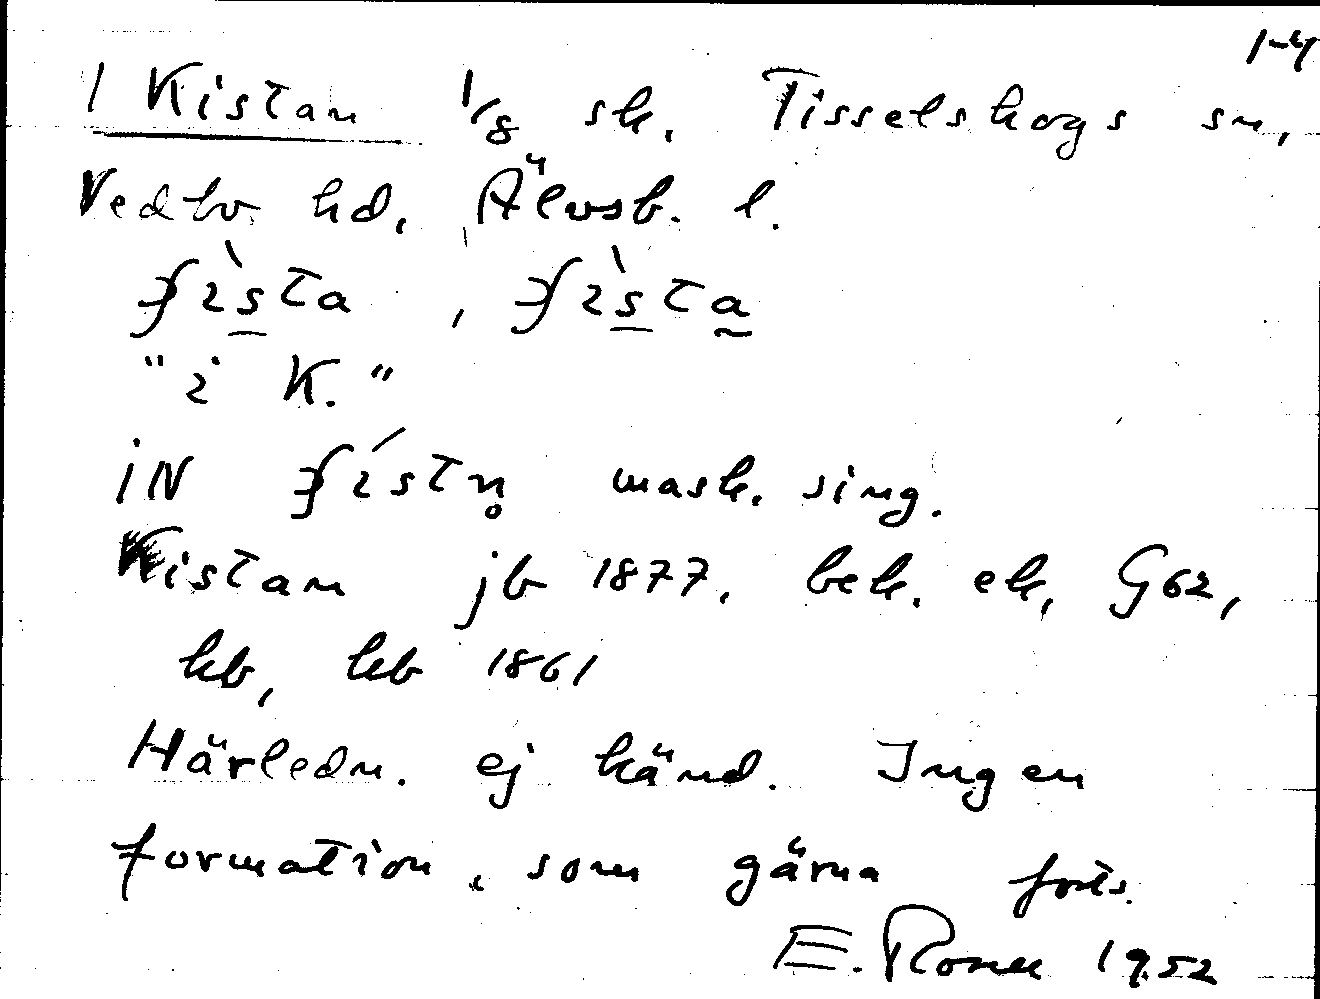 1-4
1 Kistan 1/8 sk. Tisselskogs sn,
Vedbo hd, Älvsb. l.
"i K."
iN mask. sing.
Kistan jb 1877, bek. ek, G62,
kb, hb 1861
Härledn. ej känd. Ingen
formation, som gärna forts.
E. Rosell 1952